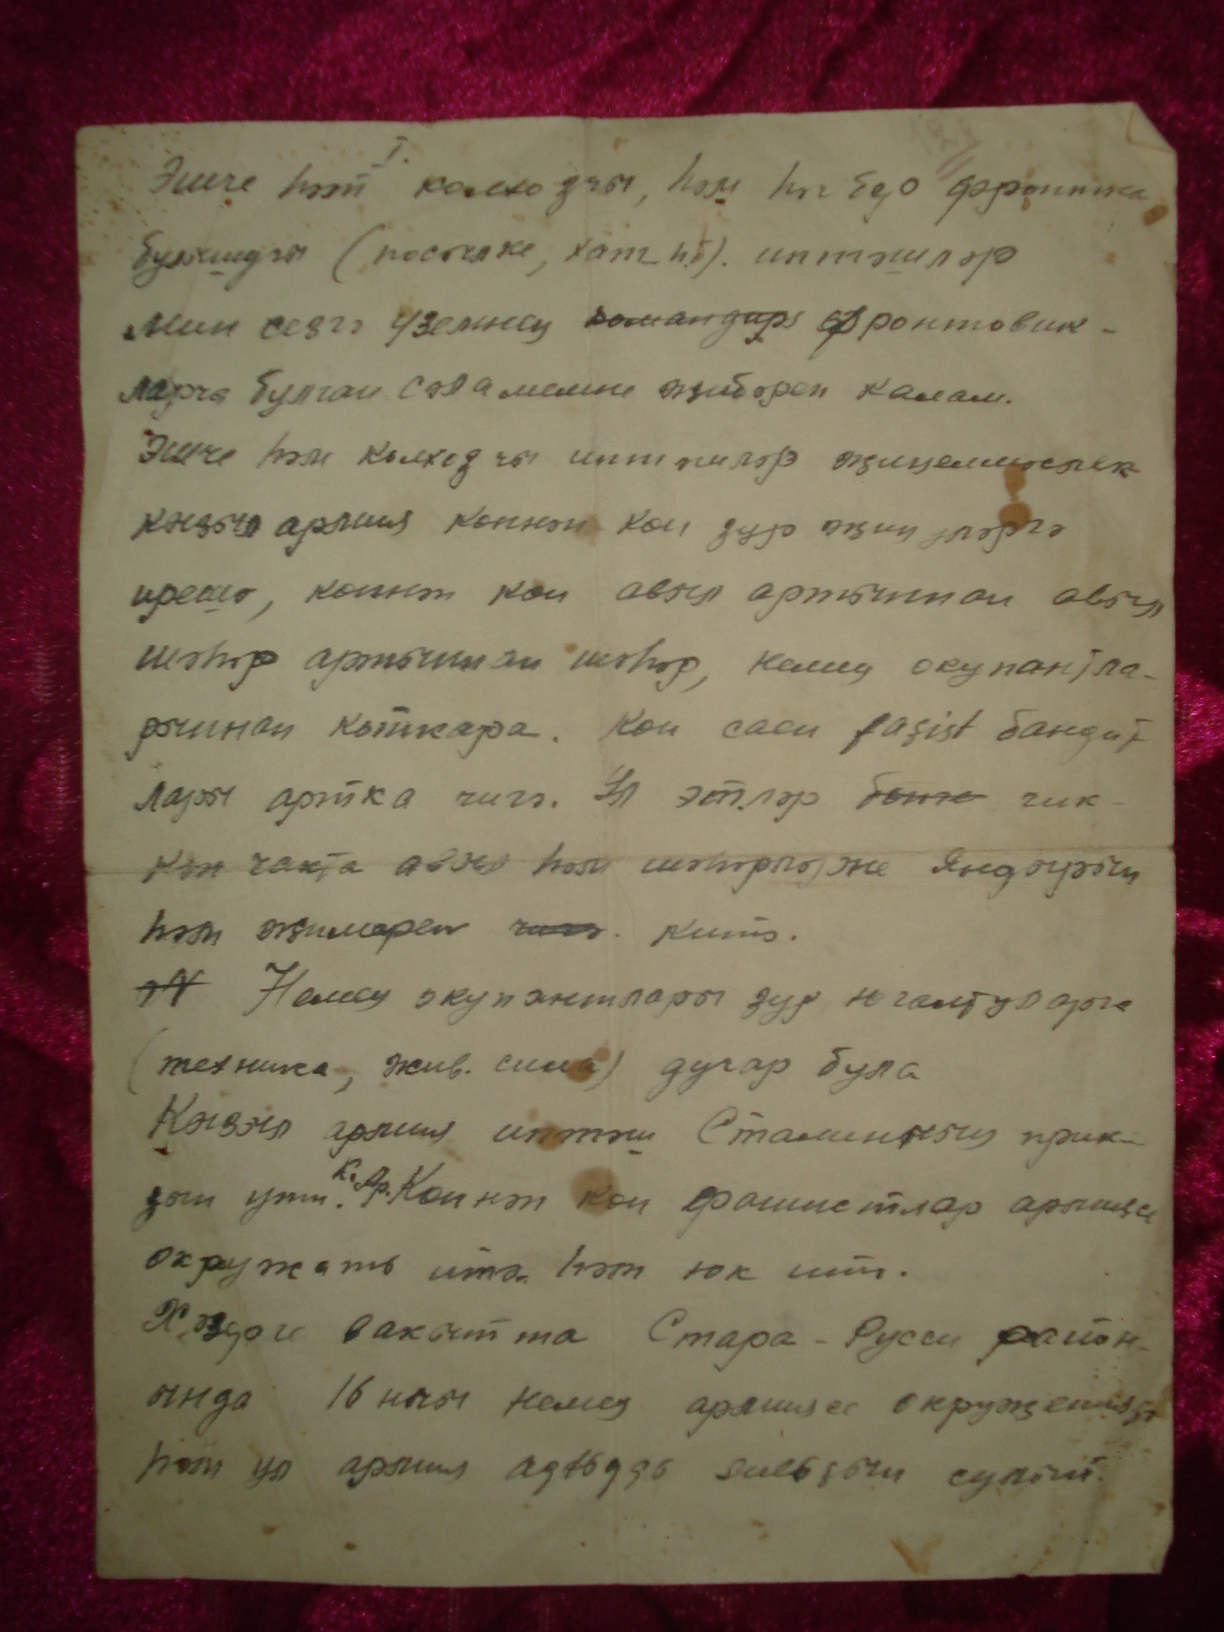 I.
Эшче һәм колхозчы, һәм һәр бер фронтка
булышучы (посылке, хат һ.б). иптәшләр
Мин сезгә үземнең командир фронтовик-
ларча булган сәламемне җибәреп калам.
Эшче һәм колхозчы иптәшләр
кызыл армия көннән көн зур җиңүләргә
ирешә, көннән көн авыл артыннан авыл
шәһәр артыннан шәһәр, немец окупантла-
рыннан коткара. Көн саен faşist бандит
лары артка чигә. Ул этләр чик-
кән чакта авыл һәм шәһәрләрне яндырып
һәм җимереп чигә. китә.
Немец окупантлары зур югалтуларга
(техника, жив. сила) дучар була
Кызыл армия иптәш Сталинның прик-
зын үти. К. Ар. Көннән көн фашистлар армиясе
окружать итә һәм юк итә.
Хәзерге вакытта Стара-Русси район-
ында 16 нчы немец армиясе окружениядә
һәм ул армия сулый.